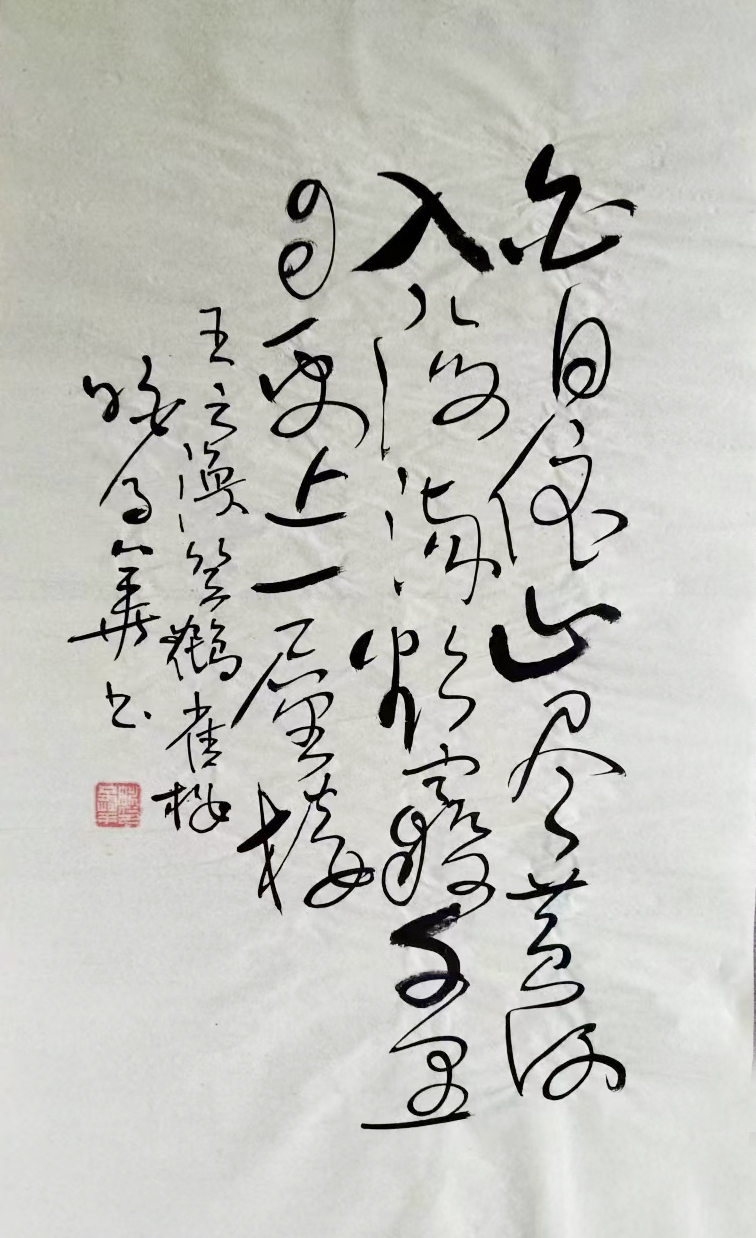 白日依山尽黄河
入海流欲窮千里
目更上一層楼
王之涣登鹳雀楼
華书